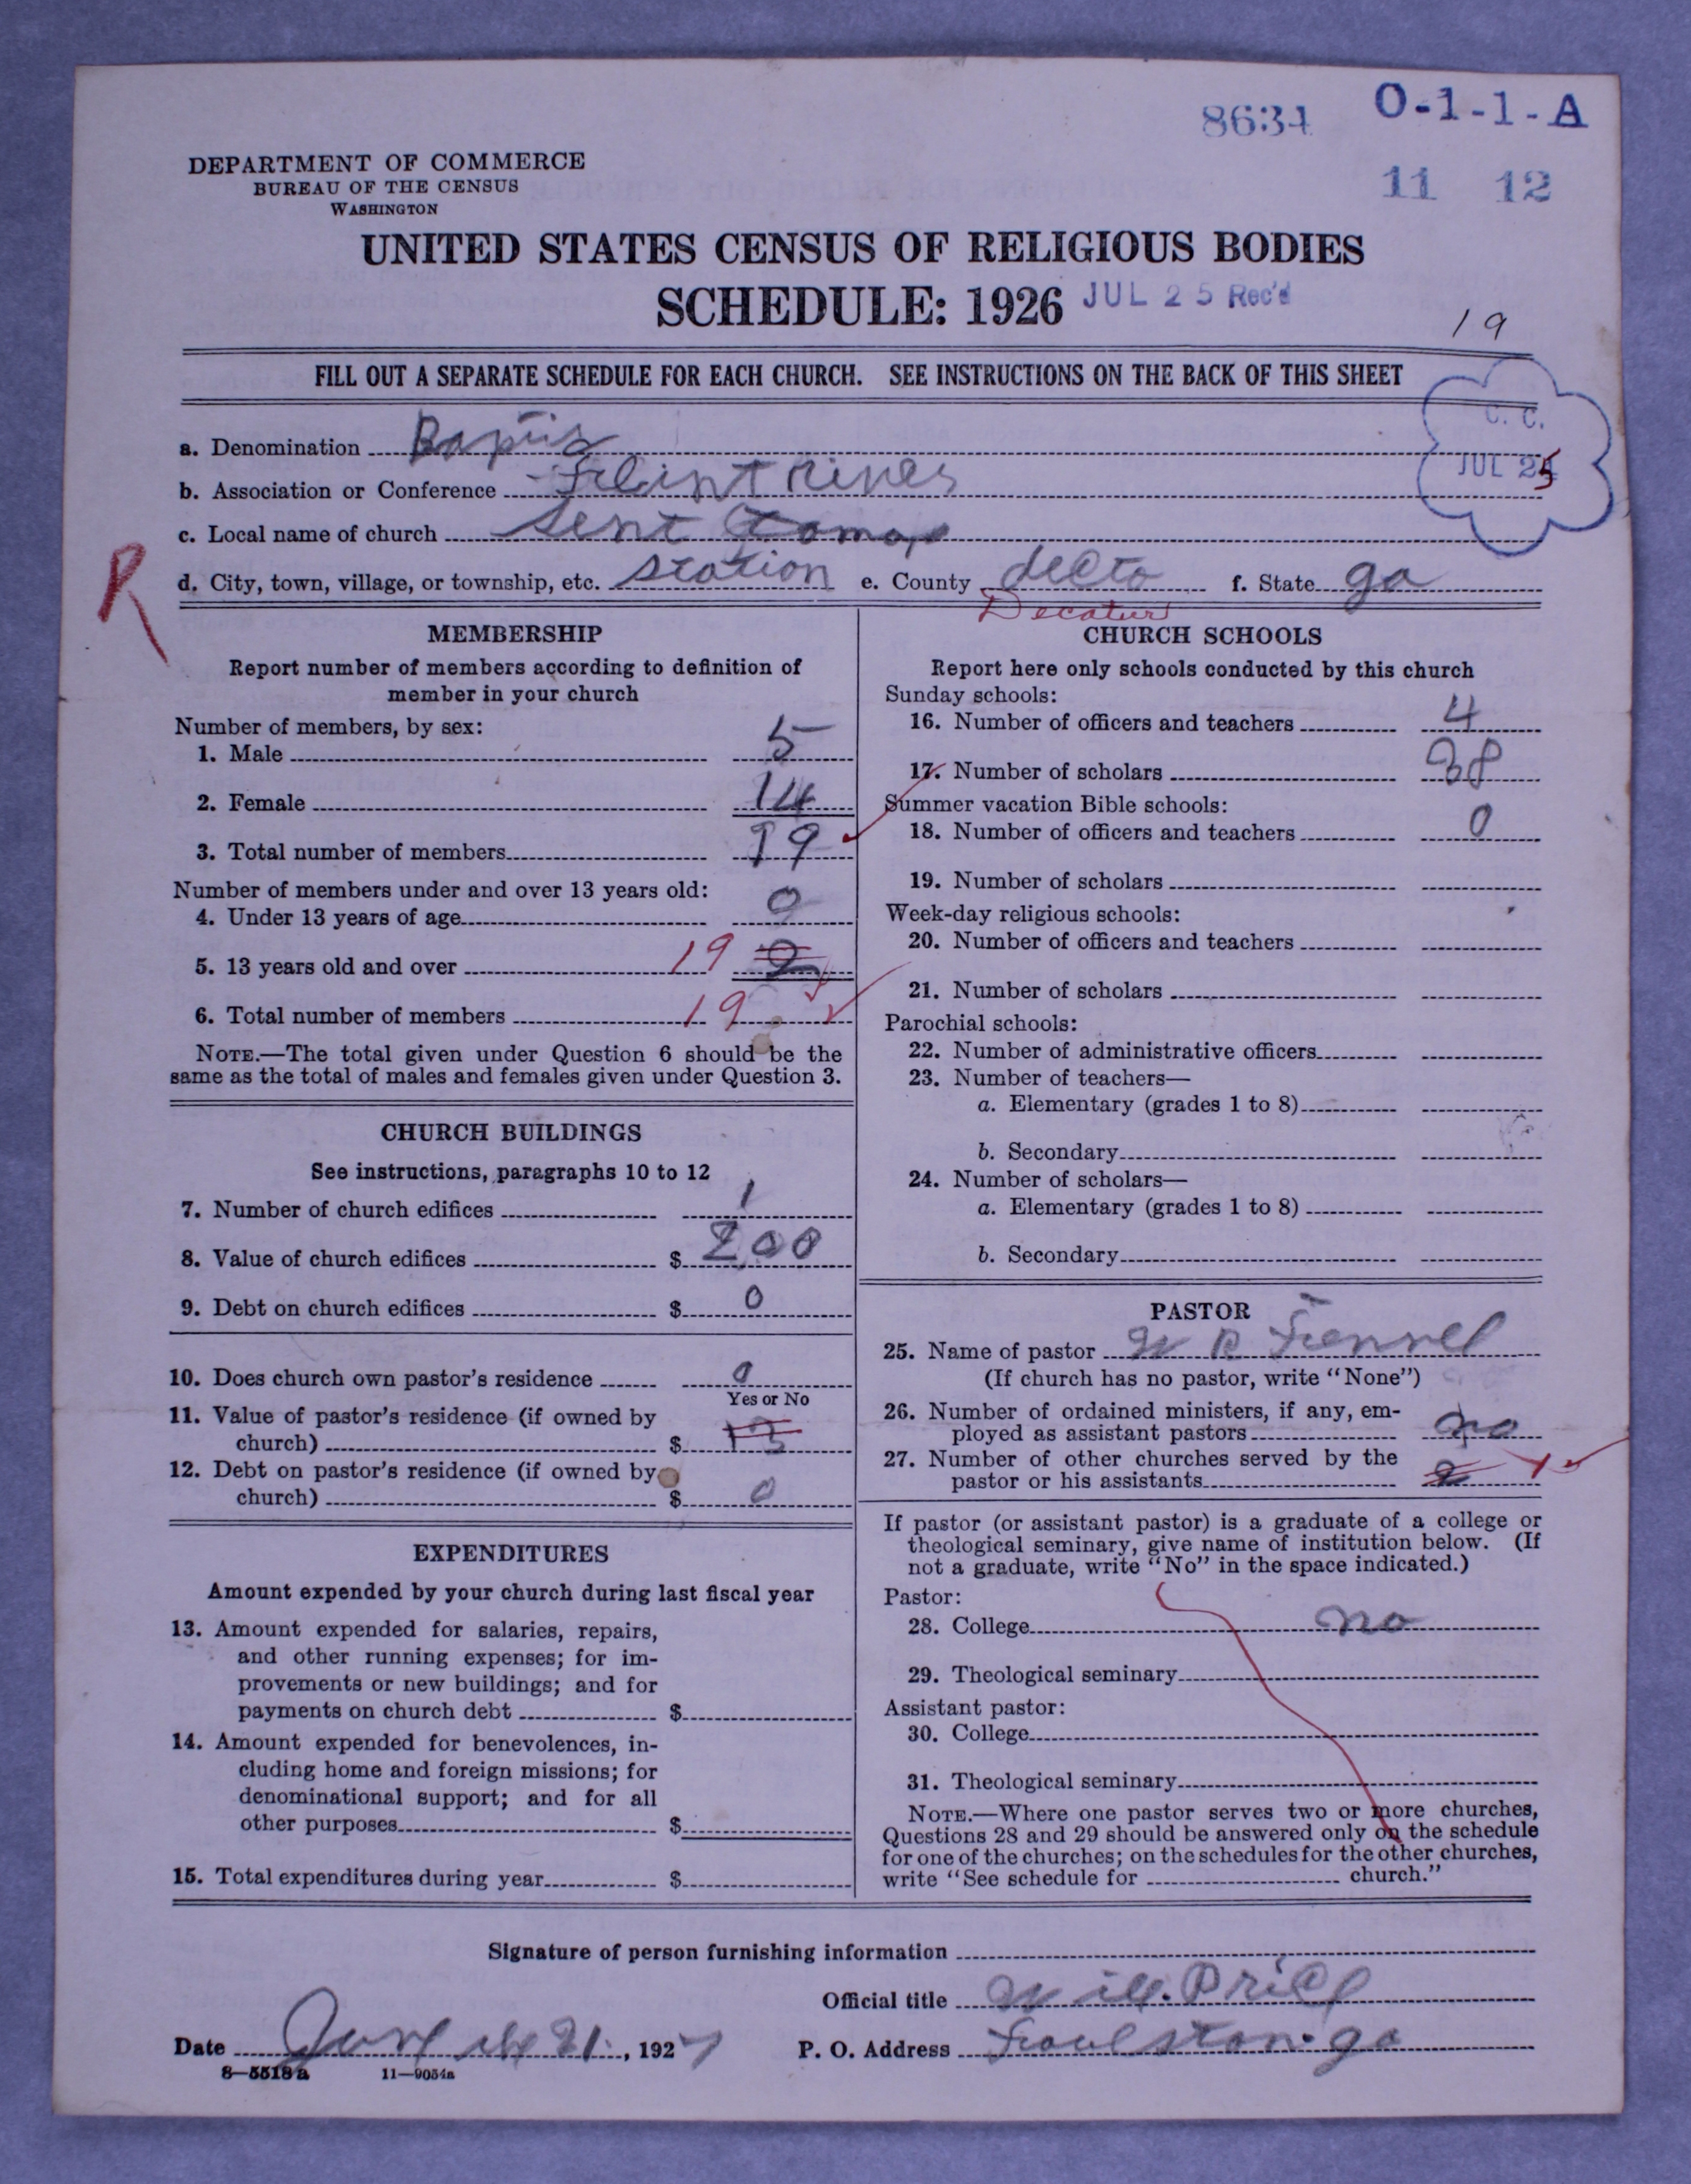 8634 O-1-1-A
11 12
DEPARTMENT OF COMMERCE
BUREAU OF THE CENSUS
WASHINGTON
UNITED STATES CENSUS OF RELIGIOUS BODIES
SCHEDULE: 1926 JUL 25 Rec'd
19
FILL OUT A SEPARATE SCHEDULE FOR EACH CHURCH. SEE INSTRUCTIONS ON THE BACK OF THIS SHEET
C. C.
JUL 25
a. Denomination Baptis
b. Association or Conference Flint River
c. Local name of church Sent tomas
d. City, town, village, or township, etc. station e. County decto f. State ga
R
Decatur
MEMBERSHIP
Report number of members according to definition of
member in your church
Number of members, by sex:
1. Male 5
2. Female 14
3. Total number of members 19
Number of members under and over 13 years old:
4. Under 13 years of age 0
5. 13 years old and over 19 2
6. Total number of members 19
NOTE.—The total given under Question 6 should be the
same as the total of males and females given under Question 3.
CHURCH BUILDINGS
See instructions, paragraphs 10 to 12
7. Number of church edifices 1
8. Value of church edifices $ 200
9. Debt on church edifices $ 0
10. Does church own pastor's residence 0
Yes or No
11. Value of pastor's residence (if owned by
church) $ 13
12. Debt on pastor's residence (if owned by
church) $ 0
EXPENDITURES
Amount expended by your church during last fiscal year
13. Amount expended for salaries, repairs,
and other running expenses; for im-
provements or new buildings; and for
payments on church debt $
14. Amount expended for benevolences, in-
cluding home and foreign missions; for
denominational support; and for all
other purposes $
15. Total expenditures during year $
CHURCH SCHOOLS
Report here only schools conducted by this church
Sunday schools:
16. Number of officers and teachers 4
17. Number of scholars 38
Summer vacation Bible schools:
18. Number of officers and teachers 0
19. Number of scholars
Week-day religious schools:
20. Number of officers and teachers
21. Number of scholars
Parochial schools:
22. Number of administrative officers
23. Number of teachers—
a. Elementary (grades 1 to 8)
b. Secondary
24. Number of scholars—
a. Elementary (grades 1 to 8)
b. Secondary
PASTOR
25. Name of pastor W R
(If church has no pastor, write "None")
26. Number of ordained ministers, if any, em-
ployed as assistant pastors no
27. Number of other churches served by the
pastor or his assistants 2 1
If pastor (or assistant pastor) is a graduate of a college or
theological seminary, give name of institution below. (If
not a graduate, write "No" in the space indicated.)
Pastor:
28. College no
29. Theological seminary
Assistant pastor:
30. College
31. Theological seminary
NOTE.—Where one pastor serves two or more churches,
Questions 28 and 29 should be answered only on the schedule
for one of the churches; on the schedules for the other churches,
write "See schedule for church."
Signature of person furnishing information
Official title Will. Price
Date June 21, 1927 P. O. Address ga
8—5518a 11—9054a